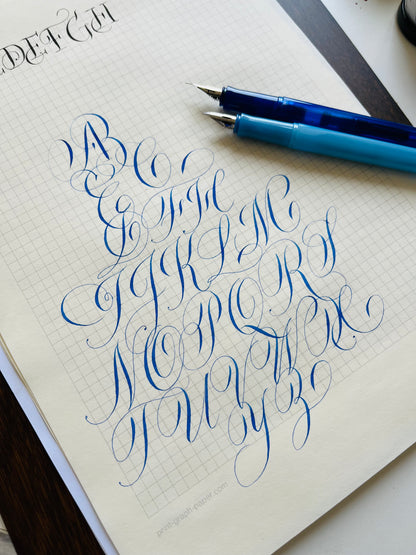 DEFGH
ABC
E
G F H
I J K L M
N O P Q R S
T U V W X
Y Z
print-graph-paper.com